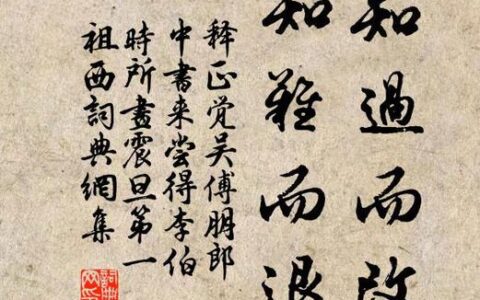 知過而改
知難而退
释正觉吴傅朋郎
中書来嘗得李伯
時所畫震旦第一
祖西詞典網集